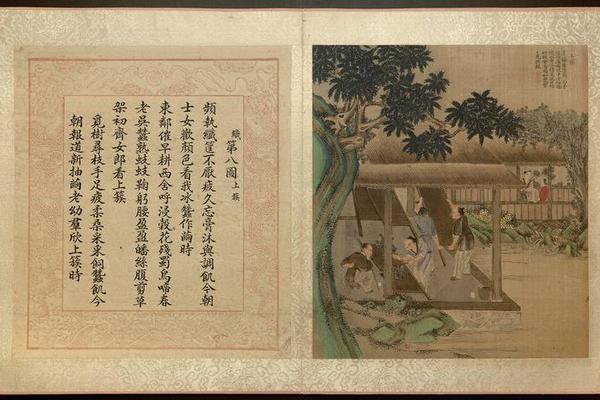 織第八圖上簇
頻執纖筐不厭疲久忘膏沐與調飢今朝
士女歡顏色看我冰蠶作繭時
東鄰催早耕西舍呼浸穀花殘蜀鳥啼春
老吳蠶熟蚑蚑鞠躬腰盈盈皤絲腹剪草
架初齊女郎看上簇
覓樹尋枝手足疲柔桑采采飼蠶飢今
朝報道新抽繭老幼羣欣上簇時